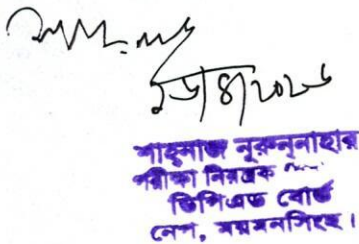 শাহনাজ নূরুন্‌নাহার
পরীক্ষা নিয়ন্ত্রক
ডিপিএড বোর্ড
নেপ, ময়মনসিংহ।